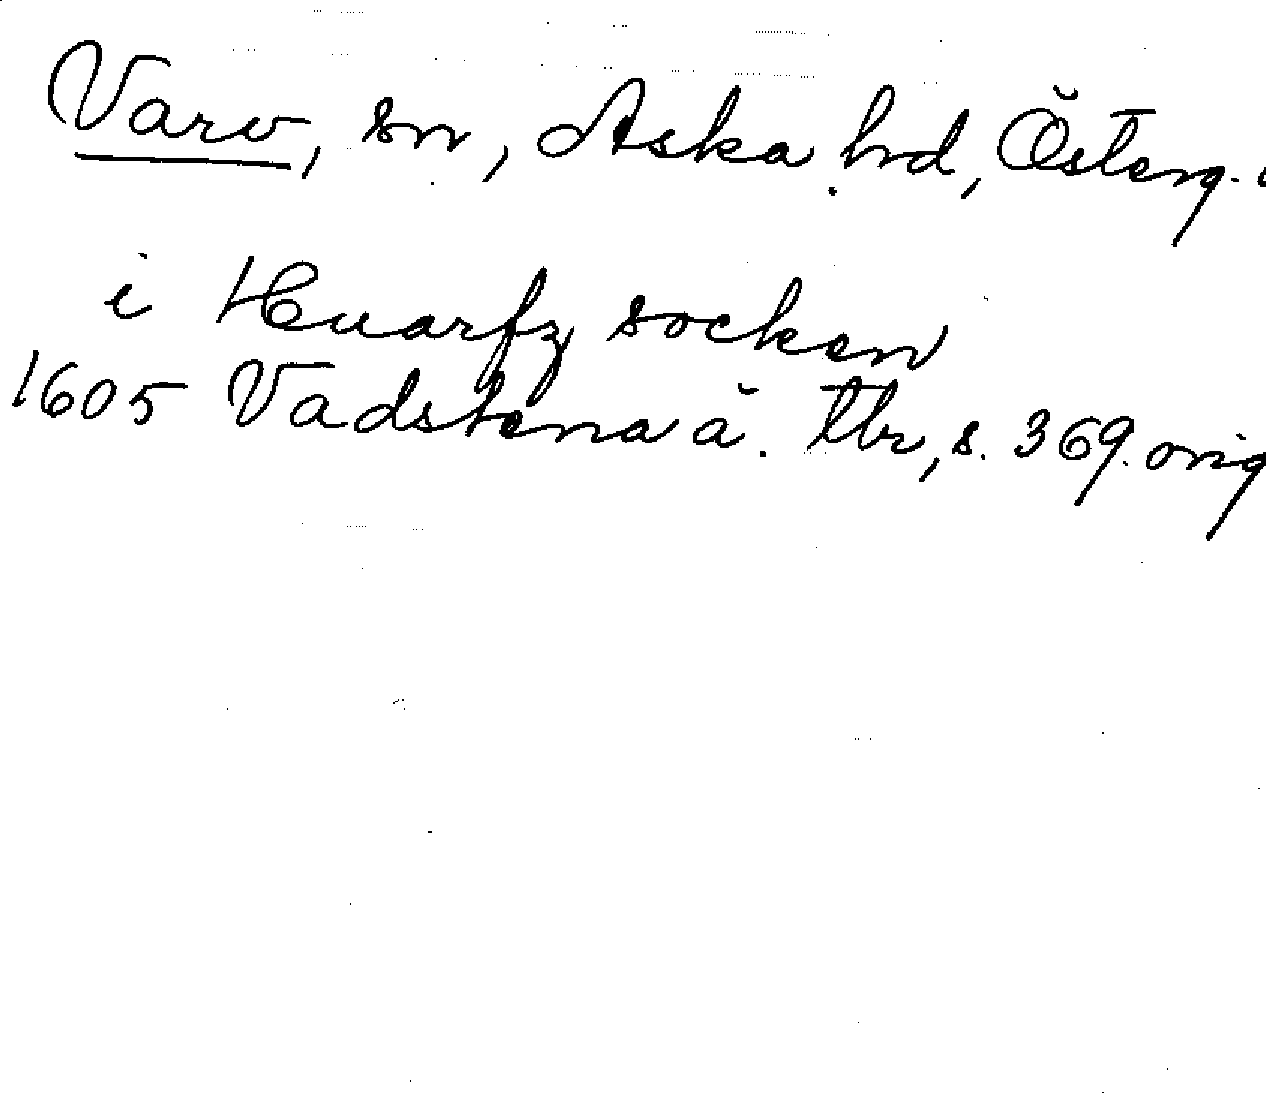 Varv, sn, Aska hrd, Österg.
i Huarfz socken
1605 Vadstena ä. tbr, s. 369. orig